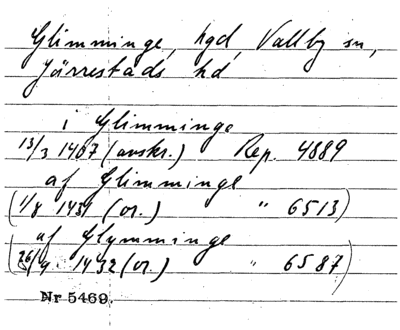 Glimminge, hgd, Vallby sn,
Järrestads hd
i Glimminge
13/3 1407 (avskr.) Rep. 4889
af Glimminge
(1/8 1431 (or.) " 6513)
af Glymminge
(26/9 1432 (or.) " 6587)
Nr 5469.